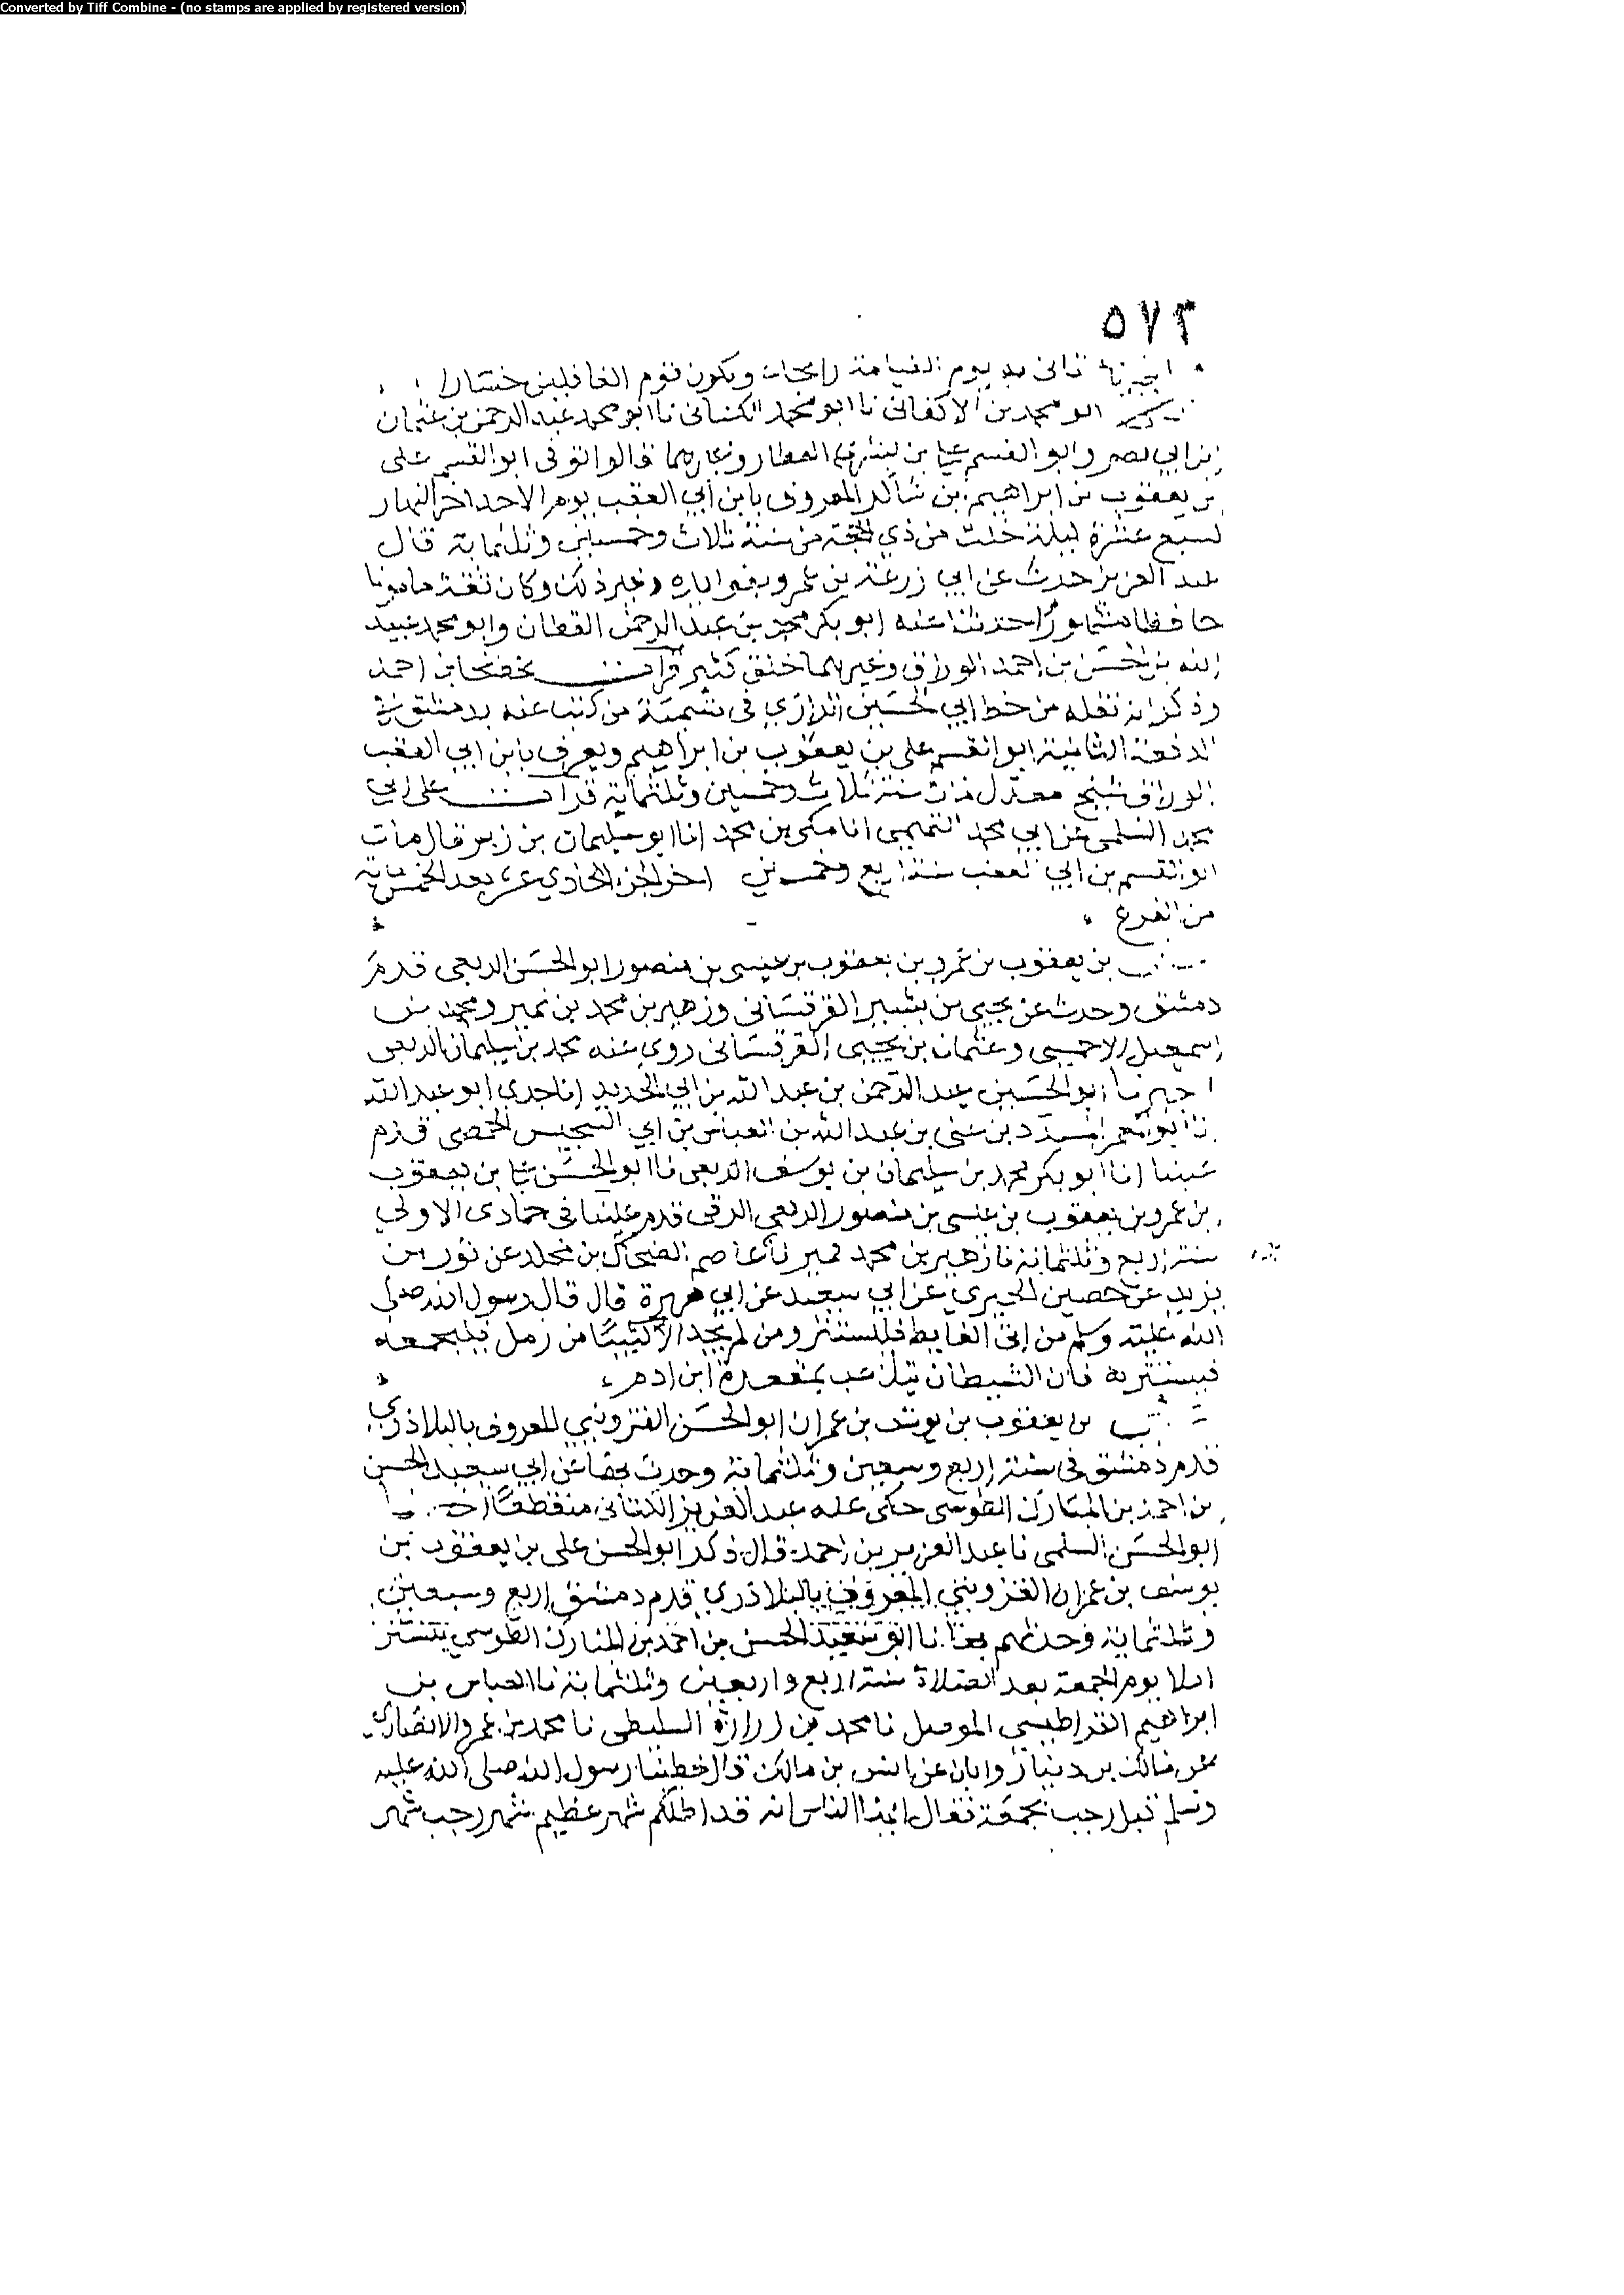 Converted by Tiff Combine - (no stamps are applied by registered version)
٥٧٣
يوم القيامة رابحات ويكون قوم الغافلين خسارا
ابو محمد بن الاكفاني نا ابو محمد الكتاني نا ابو محمد عبد الرحمن بن عثمان
بن ابي نصر وابو القسم علي بن بشرى العطار وغيرهما قالوا توفي ابو القسم علي
بن يعقوب بن ابراهيم بن شاكر المعروف بابن ابي العقب يوم الاحد اخر النهار
لسبع عشرة ليلة خلت من ذي الحجة من سنة ثلاث وخمسين وثلثماية قال
عبد العزيز حدث عن ابي زرعة بن عمرو وغيره ذلك وكان ثقة مامونا
حافظا مشهورا حدثنا عنه ابو بكر محمد بن عبد الرحمن القطان وابو محمد عبيد
الله بن الحسن بن احمد الوراق وغيرهما خلق كثير قرات بخط نجا بن احمد
وذكر انه نقله من خط ابي الحسين الرازي في تسمية من كتب عنه بدمشق في
الدفعة الثانية ابو القسم علي بن يعقوب بن ابراهيم ويعرف بابن ابي العقب
الوراق شيخ معدل مات سنة ثلاث وخمسين وثلثماية قرات على ابي
محمد السلمي عن ابي محمد التميمي انا مكي بن محمد انا ابو سليمان بن زبر قال مات
ابو القسم بن ابي العقب سنة اربع وخمسين اخر الجزء الحادي عشر بعد الخمسماية
من الفرع
بن يعقوب بن عمرو بن يعقوب بن عيسى بن منصور ابو الحسن الربعي قدم
دمشق وحدث عن يحيى بن بشير القرقساني وزهير بن محمد بن نمير ومحمد بن
اسمعيل الاحمسي وعثمان بن يحيى القرقساني روى عنه محمد بن سليمان الربعي
اخبرنا ابو الحسين عبد الرحمن بن عبد الله بن ابي الحديد انا جدي ابو عبد الله
نا ابو المعمر المسدد بن علي بن عبد الله بن العباس بن ابي السجيس الحمصي قدم
علينا انا ابو بكر محمد بن سليمان بن يوسف الربعي نا ابو الحسن علي بن يعقوب
بن عمرو بن يعقوب بن عيسى بن منصور الربعي الرقي قدم علينا في جمادى الاولى
سنة اربع وثلثماية نا زهير بن محمد نمير نا عاصم الضحاك بن مخلد عن ثور بن
يزيد عن حصين الحميري عن ابي سعيد عن ابي هريرة قال قال رسول الله صلى
الله عليه وسلم من اتى الغايط فليستتر ومن لم يجد الا كثيبا من رمل فليجمعه
فيستتر به فان الشيطان يتلاعب بمقعدة ابن ادم
بن يعقوب بن يوسف بن عمران ابو الحسن القزويني المعروف بالبلاذري
قدم دمشق في سنة اربع وسبعين وثلثماية وحدث بها عن ابي سعيد الحسن
بن احمد بن المبارك الطوسي حكى عنه عبد العزيز الكتاني منقطعا
ابو الحسن السلمي نا عبد العزيز بن احمد قال ذكر ابو الحسن علي بن يعقوب بن
يوسف بن عمران القزويني المعروف بالبلاذري قدم دمشق اربع وسبعين
وثلثماية وحدثهم بها نا ابو سعيد الحسن بن احمد بن المبارك الطوسي بتستر
املا يوم الجمعة بعد الصلاة سنة اربع واربعين وثلثماية نا العباس بن
ابراهيم القراطيسي الموصل نا محمد بن زرارة السليطي نا محمد بن عمرو الانصاري
عن مالك بن دينار وابان عن انس بن مالك قال خطبنا رسول الله صلى الله عليه
وسلم قبل رجب بجمعة فقال ايها الناس انه قد اظلكم شهر عظيم شهر رجب شهر